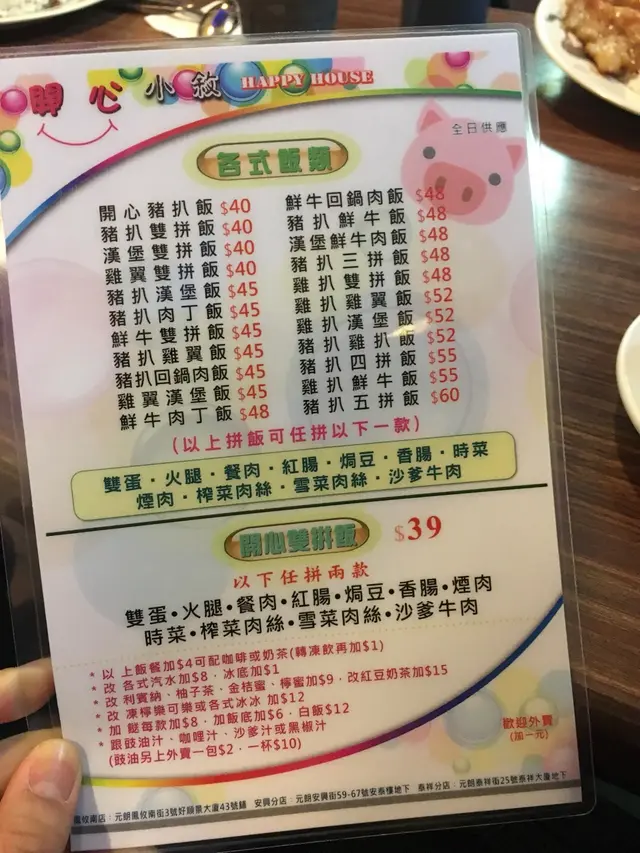 開心小敘 HAPPY HOUSE
全日供應
各式飯類
開心豬扒飯 $40
豬扒雙拼飯 $40
漢堡雙拼飯 $40
雞翼雙拼飯 $40
豬扒漢堡飯 $45
豬扒肉丁飯 $45
鮮牛雙拼飯 $45
豬扒雞翼飯 $45
豬扒回鍋肉飯 $45
雞翼漢堡飯 $45
鮮牛肉丁飯 $48
鮮牛回鍋肉飯 $48
豬扒鮮牛飯 $48
漢堡鮮牛肉飯 $48
豬扒三拼飯 $48
雞扒雙拼飯 $48
雞扒雞翼飯 $52
雞扒漢堡飯 $52
豬扒雞扒飯 $52
豬扒四拼飯 $55
雞扒鮮牛飯 $55
豬扒五拼飯 $60
(以上拼飯可任拼以下一款)
雙蛋·火腿·餐肉·紅腸·焗豆·香腸·時菜
煙肉·榨菜肉絲·雪菜肉絲·沙爹牛肉
開心雙拼飯 $39
以下任拼兩款
雙蛋•火腿•餐肉•紅腸•焗豆•香腸•煙肉
時菜•榨菜肉絲•雪菜肉絲•沙爹牛肉
* 以上飯餐加$4可配咖啡或奶茶(轉凍飲再加$1)
* 改各式汽水加$8﹐冰底加$1
* 改利賓納﹐柚子茶﹐金桔蜜﹐檸蜜加$9﹐改紅豆奶茶加$15
* 改凍檸樂可樂或各式冰冰 加$12
* 加餸每款加$8﹐加飯底加$6﹐白飯$12
* 跟豉油汁﹐咖喱汁﹐沙爹汁或黑椒汁
(豉油另上外賣一包$2﹐一杯$10)
歡迎外賣
(加一元)
鳳攸南店：元朗鳳攸南街3號好順景大廈43號舖 安興分店：元朗安興街59-67號安泰樓地下 泰祥分店：元朗泰祥街25號泰祥大廈地下